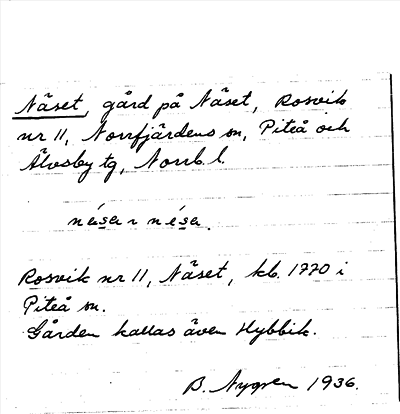 Näset, gård på Näset, Rosvik
nr 11, Norrfjärdens sn, Piteå och
Älvsby tg, Norrb. l.
näsa ~ nésa.
Rosvik nr 11, Näset, kb. 1770 i
Piteå sn.
Gården kallas även Hybbik.
B. Nygren 1936.